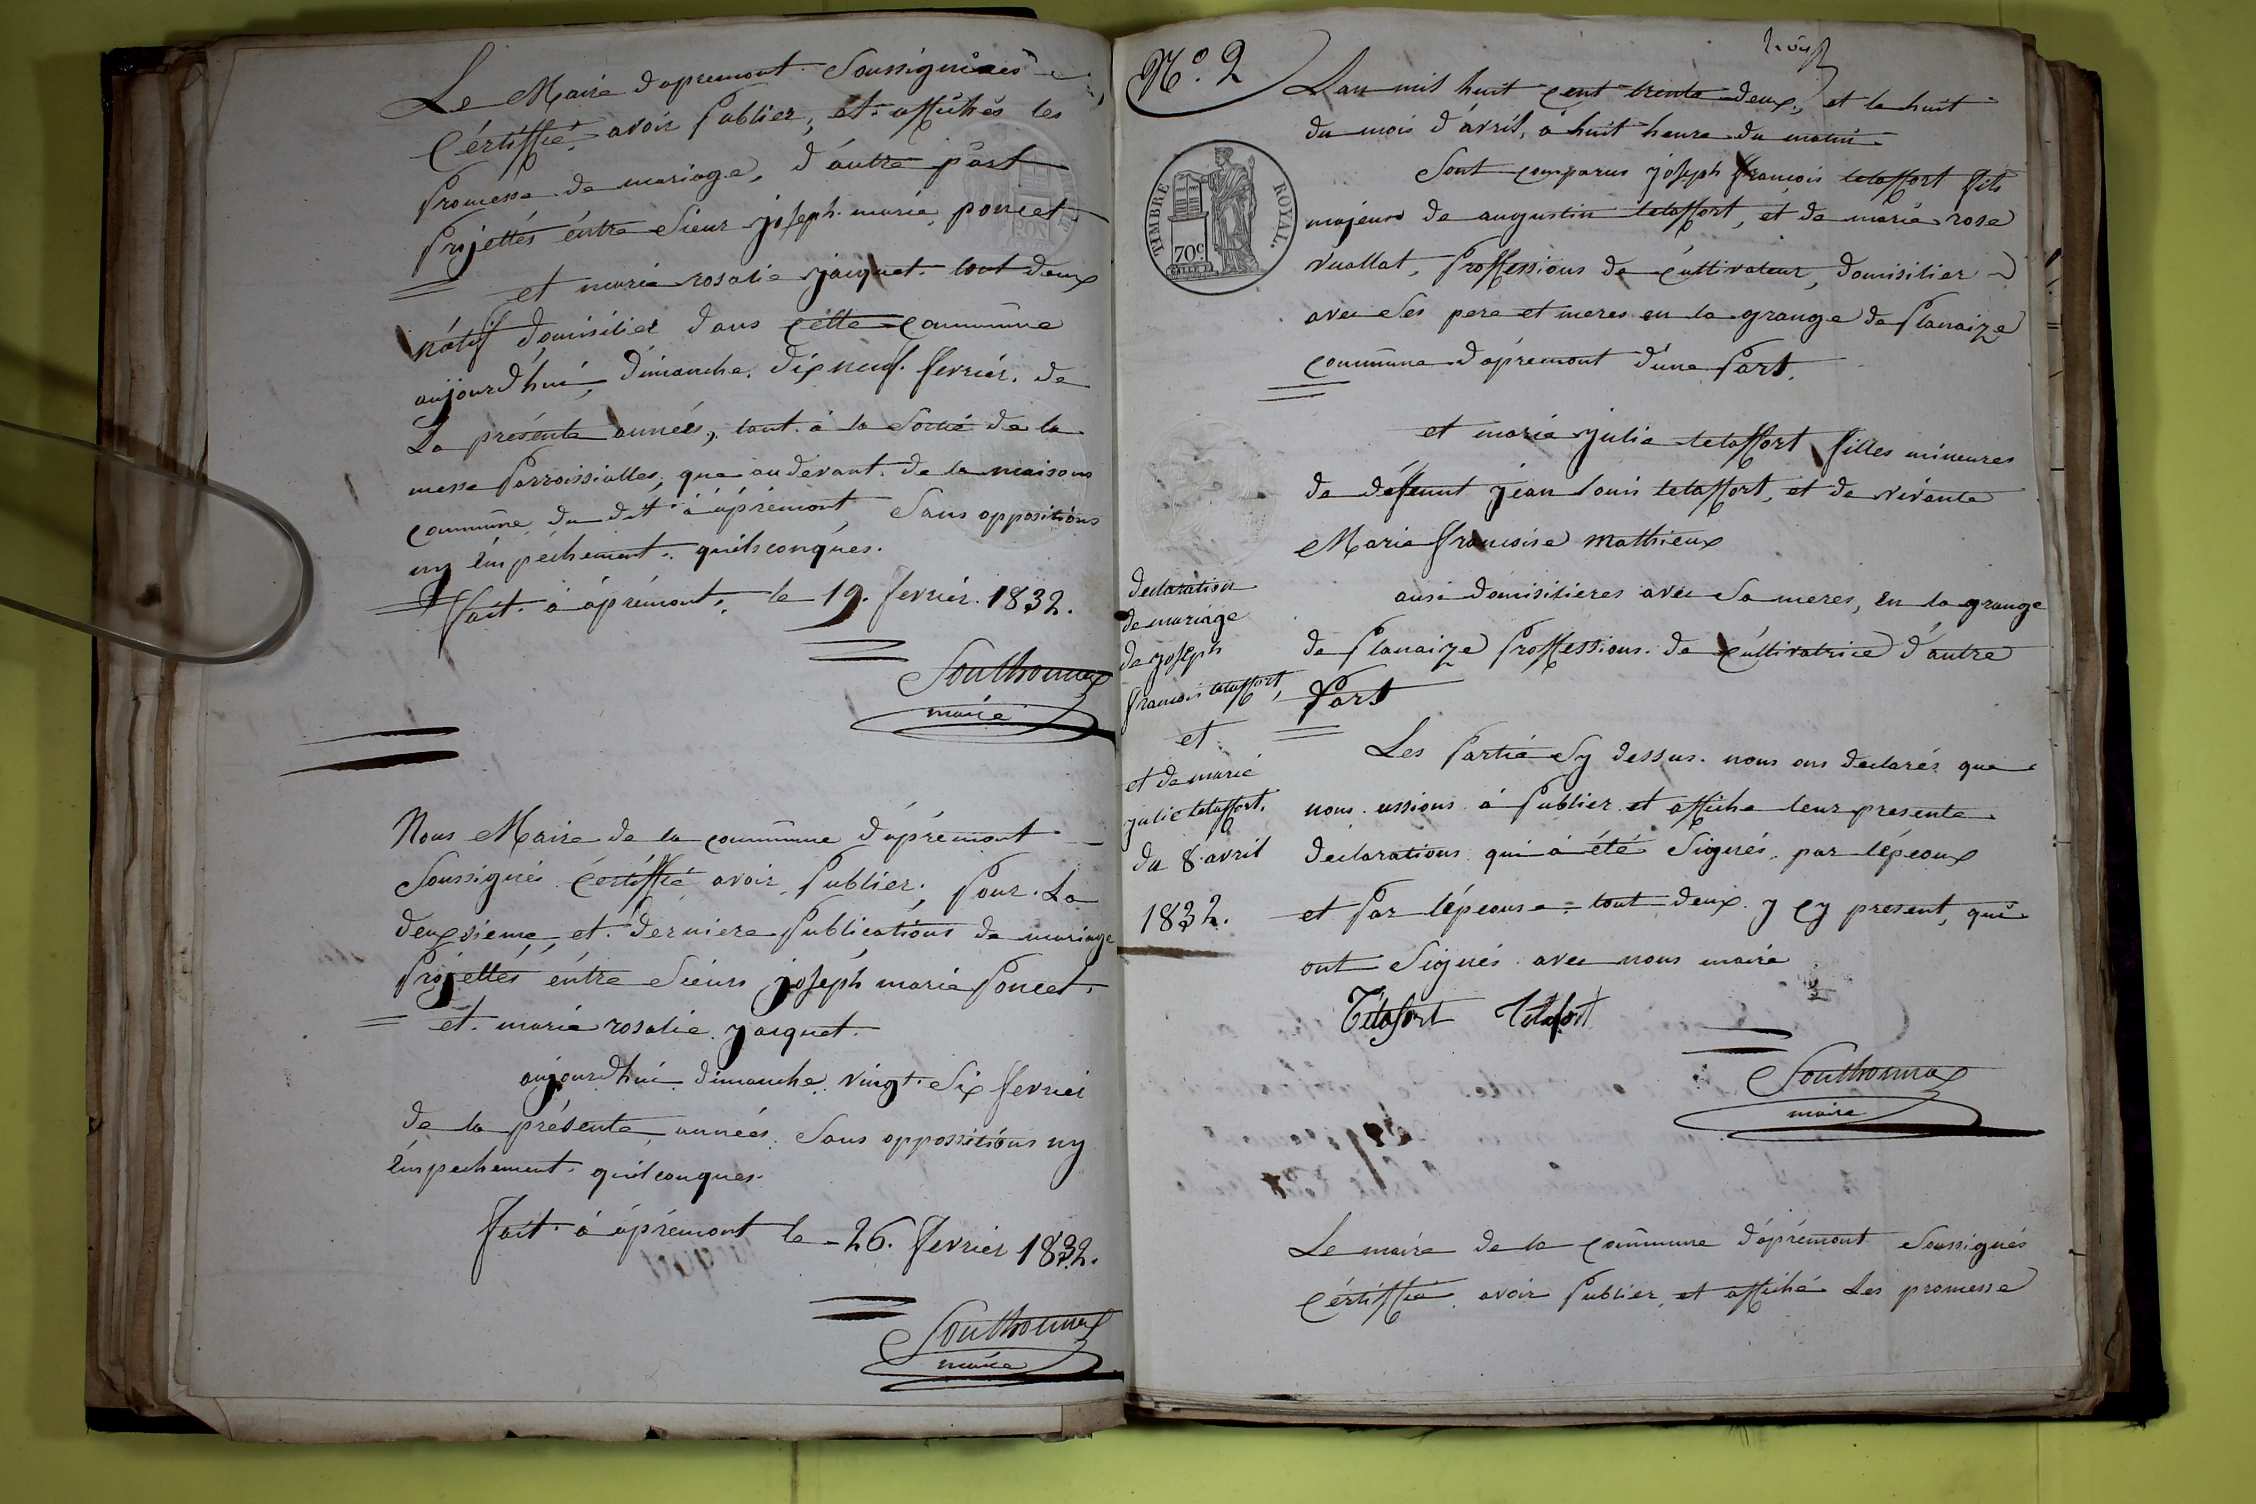 Le Maire d'apremont Soussignées
Cértiffié avoir Publier, et affichés les
Promesse de mariage, d'áutre párt
Projettés éntre Sieur joseph marie poncet
et marié rosalie jacquet tout deux
nátif domisilié dans cétte commune
aujourd'huí dimanche dix neuf fevriér de
La présénte années, tant à la Sortié de la
messe Parroissialles, que au devant de la maisons
commune du dit à ápremont Sans oppositions
ny émpéchement quélsconqués.
fait à ápremont, le 19. fevriér 1832.
Southonnax
maire
Nous Maire de la commune d'ápremont
Soussignés Cértiffié avoir Publier, Pour La
deuxsieme, et derniere Publications de mariage
Projettés éntre Sieurs joséph marié Poncet
et marié rosalie jacquet.
aujourd'hui dimanche vingt Six fevriér
de la présénte années Sans oppossitións ny
émpechement quélconques.
fait à ápremont le 26. fevriér 1832.
Southonnax
maire
trois
N.º 2 L'an mil huit cent trente deux, et le huit
du mois d'ávril, à huit heure du matin
Sont comparus joseph françois tetaffort fils
majeur de augustin tetaffort, et de marié rose
vuallat, Proffessions de cultivateur, domisilier
avec Ses pere et meres en la grange de Planaize
commune d'ápremont d'une Part.
TIMBRE ROYAL.
70 c
et marié julie tetaffort filles mineures
de défunt jéan louis tetaffort, et de vivante
Marie françoise Mathieux
ausi domisilieres avec Sa meres, en la grange
de Planaize Proffessions de cultivatrice d'áutre
Part
déclaration
de mariage
de joseph
francois tetaffort,
et
et de marié
julie tetaffort.
du 8 avril
1832.
Les Partié Sy dessus nous ons declarés que
nous ussions à Publier et affiche leur presente
declarations qui à été Signés par l'épeoux
et Par l'épeouse tout deux y cy present, qui
ont Signés avec nous maire
Tétafort Tétafort
Southonnax
maire
Le maire de la commune d'ápremont Soussignés
Cértiffié avoir Publier et affiché Les promesse